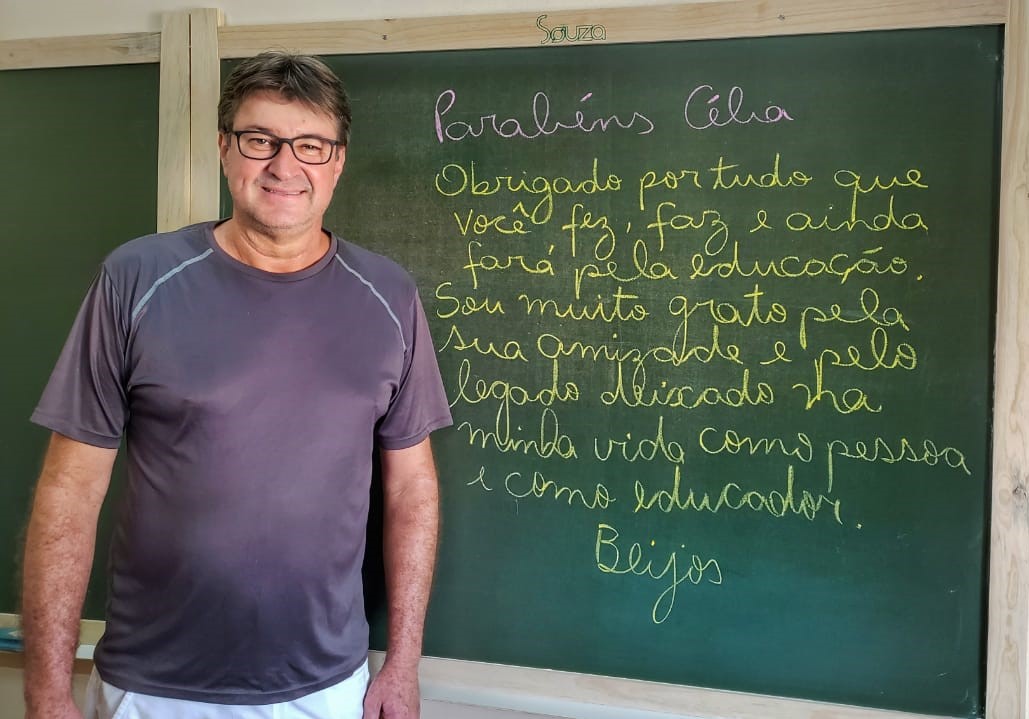 Souza
Parabéns Célia
Obrigado por tudo que
você fez, faz e ainda
fará pela educação.
Sou muito grato pela
sua amizade e pelo
legado deixado na
minha vida como pessoa
e como educador.
Beijos